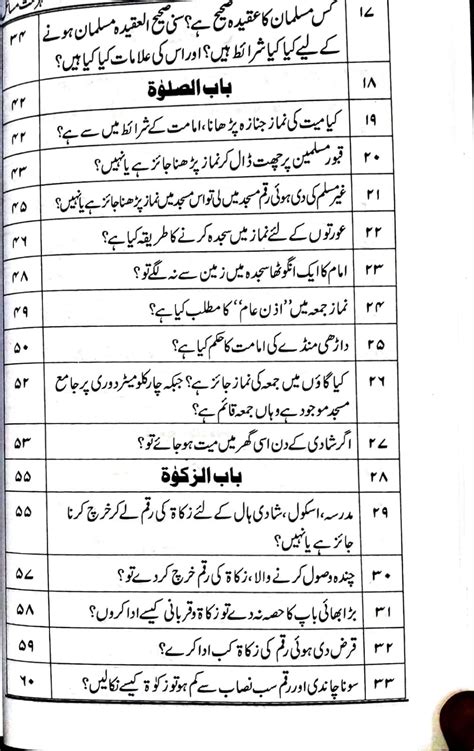 ۱۷ کس مسلمان کا عقیدہ صحیح ہے؟ سنی صحیح العقیدہ مسلمان ہونے ۳۴
کے لیے کیا کیا شرائط ہیں؟ اور اس کی علامات کیا کیا ہیں؟
۱۸ باب الصلوٰۃ ۴۲
۱۹ کیا میت کی نماز جنازہ پڑھانا، امامت کے شرائط میں سے ہے؟ ۴۲
۲۰ قبور مسلمین پر چھت ڈال کر نماز پڑھنا جائز ہے یا نہیں؟ ۴۳
۲۱ غیر مسلم کی دی ہوئی رقم مسجد میں لی تو اس مسجد میں نماز پڑھنا جائز ہے یا نہیں؟ ۴۵
۲۲ عورتوں کے لئے نماز میں سجدہ کرنے کا طریقہ کیا ہے؟ ۴۶
۲۳ امام کا ایک انگوٹھا سجدہ میں زمین سے نہ لگے تو؟ ۴۸
۲۴ نماز جمعہ میں "اذن عام" کا مطلب کیا ہے؟ ۴۹
۲۵ داڑھی منڈے کی امامت کا حکم کیا ہے؟ ۵۰
۲۶ کیا گاؤں میں جمعہ کی نماز جائز ہے؟ جبکہ چار کلومیٹر دوری پر جامع ۵۲
مسجد موجود ہے وہاں جمعہ قائم ہے؟
۲۷ اگر شادی کے دن اسی گھر میں میت ہو جائے تو؟ ۵۳
۲۸ باب الزکوٰۃ ۵۵
۲۹ مدرسہ، اسکول، شادی ہال کے لئے زکاۃ کی رقم لے کر خرچ کرنا ۵۵
جائز ہے یا نہیں؟
۳۰ چندہ وصول کرنے والا، زکاۃ کی رقم خرچ کر دے تو؟ ۵۷
۳۱ بڑا بھائی باپ کا حصہ نہ دے تو زکاۃ و قربانی کیسے ادا کروں؟ ۵۸
۳۲ قرض دی ہوئی رقم کی زکاۃ کب ادا کرے؟ ۵۹
۳۳ سونا چاندی اور رقم سب نصاب سے کم ہو تو زکوٰۃ کیسے نکالیں؟ ۶۰